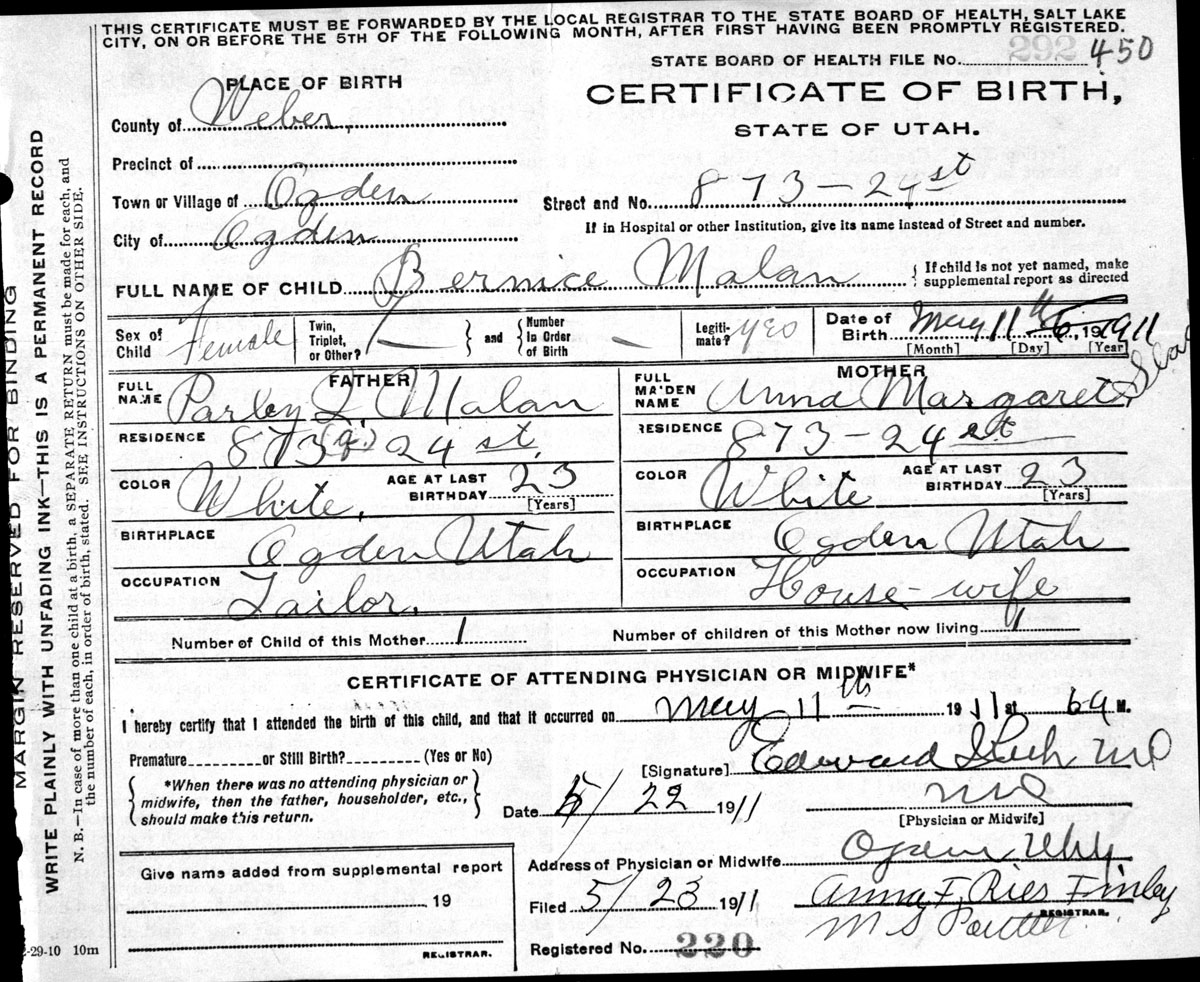 THIS CERTIFICATE MUST BE FORWARDED BY THE LOCAL REGISTRAR TO THE STATE BOARD OF HEALTH, SALT LAKE
CITY, ON OR BEFORE THE 5TH OF THE FOLLOWING MONTH, AFTER FIRST HAVING BEEN PROMPTLY REGISTERED.
292
STATE BOARD OF HEALTH FILE No. 450
PLACE OF BIRTH
CERTIFICATE OF BIRTH,
STATE OF UTAH.
County of Weber,
Precinct of
Town or Village of Ogden
Street and No. 873 - 24 st
City of Ogden
If in Hospital or other Institution, give its name instead of Street and number.
FULL NAME OF CHILD Bernice Malan
If child is not yet named, make
supplemental report as directed
Sex of Child Female
Twin, Triplet, or Other? —
and
Number In Order of Birth —
Legiti-mate? yes
Date of Birth May 11th, 1911
[Month] [Day] [Year]
FATHER
FULL NAME Parley Malan
RESIDENCE 873 24 st.
COLOR White,
AGE AT LAST BIRTHDAY 23
[Years]
BIRTHPLACE Ogden Utah
OCCUPATION Tailor.
MOTHER
FULL MAIDEN NAME Anna Margaret
RESIDENCE 873 - 24 st
COLOR White
AGE AT LAST BIRTHDAY 23
[Years]
BIRTHPLACE Ogden Utah
OCCUPATION House-wife
Number of Child of this Mother 1
Number of children of this Mother now living 1
CERTIFICATE OF ATTENDING PHYSICIAN OR MIDWIFE*
I hereby certify that I attended the birth of this child, and that it occurred on May 11th 1911 at 6 M.
Premature or Still Birth? (Yes or No)
[Signature] Edward MD
*When there was no attending physician or
midwife, then the father, householder, etc.,
should make this return.
Date 5/22 1911
MD
[Physician or Midwife]
Address of Physician or Midwife Ogden Utah
Give name added from supplemental report
19
REGISTRAR.
Filed 5/23 1911
Anna F. Ries Finley
REGISTRAR.
M S
Registered No. 220
2-29-10 10m
MARGIN RESERVED FOR BINDING
WRITE PLAINLY WITH UNFADING INK—THIS IS A PERMANENT RECORD
N. B.—In case of more than one child at a birth, a SEPARATE RETURN must be made for each, and
the number of each, in order of birth, stated. SEE INSTRUCTIONS ON OTHER SIDE.